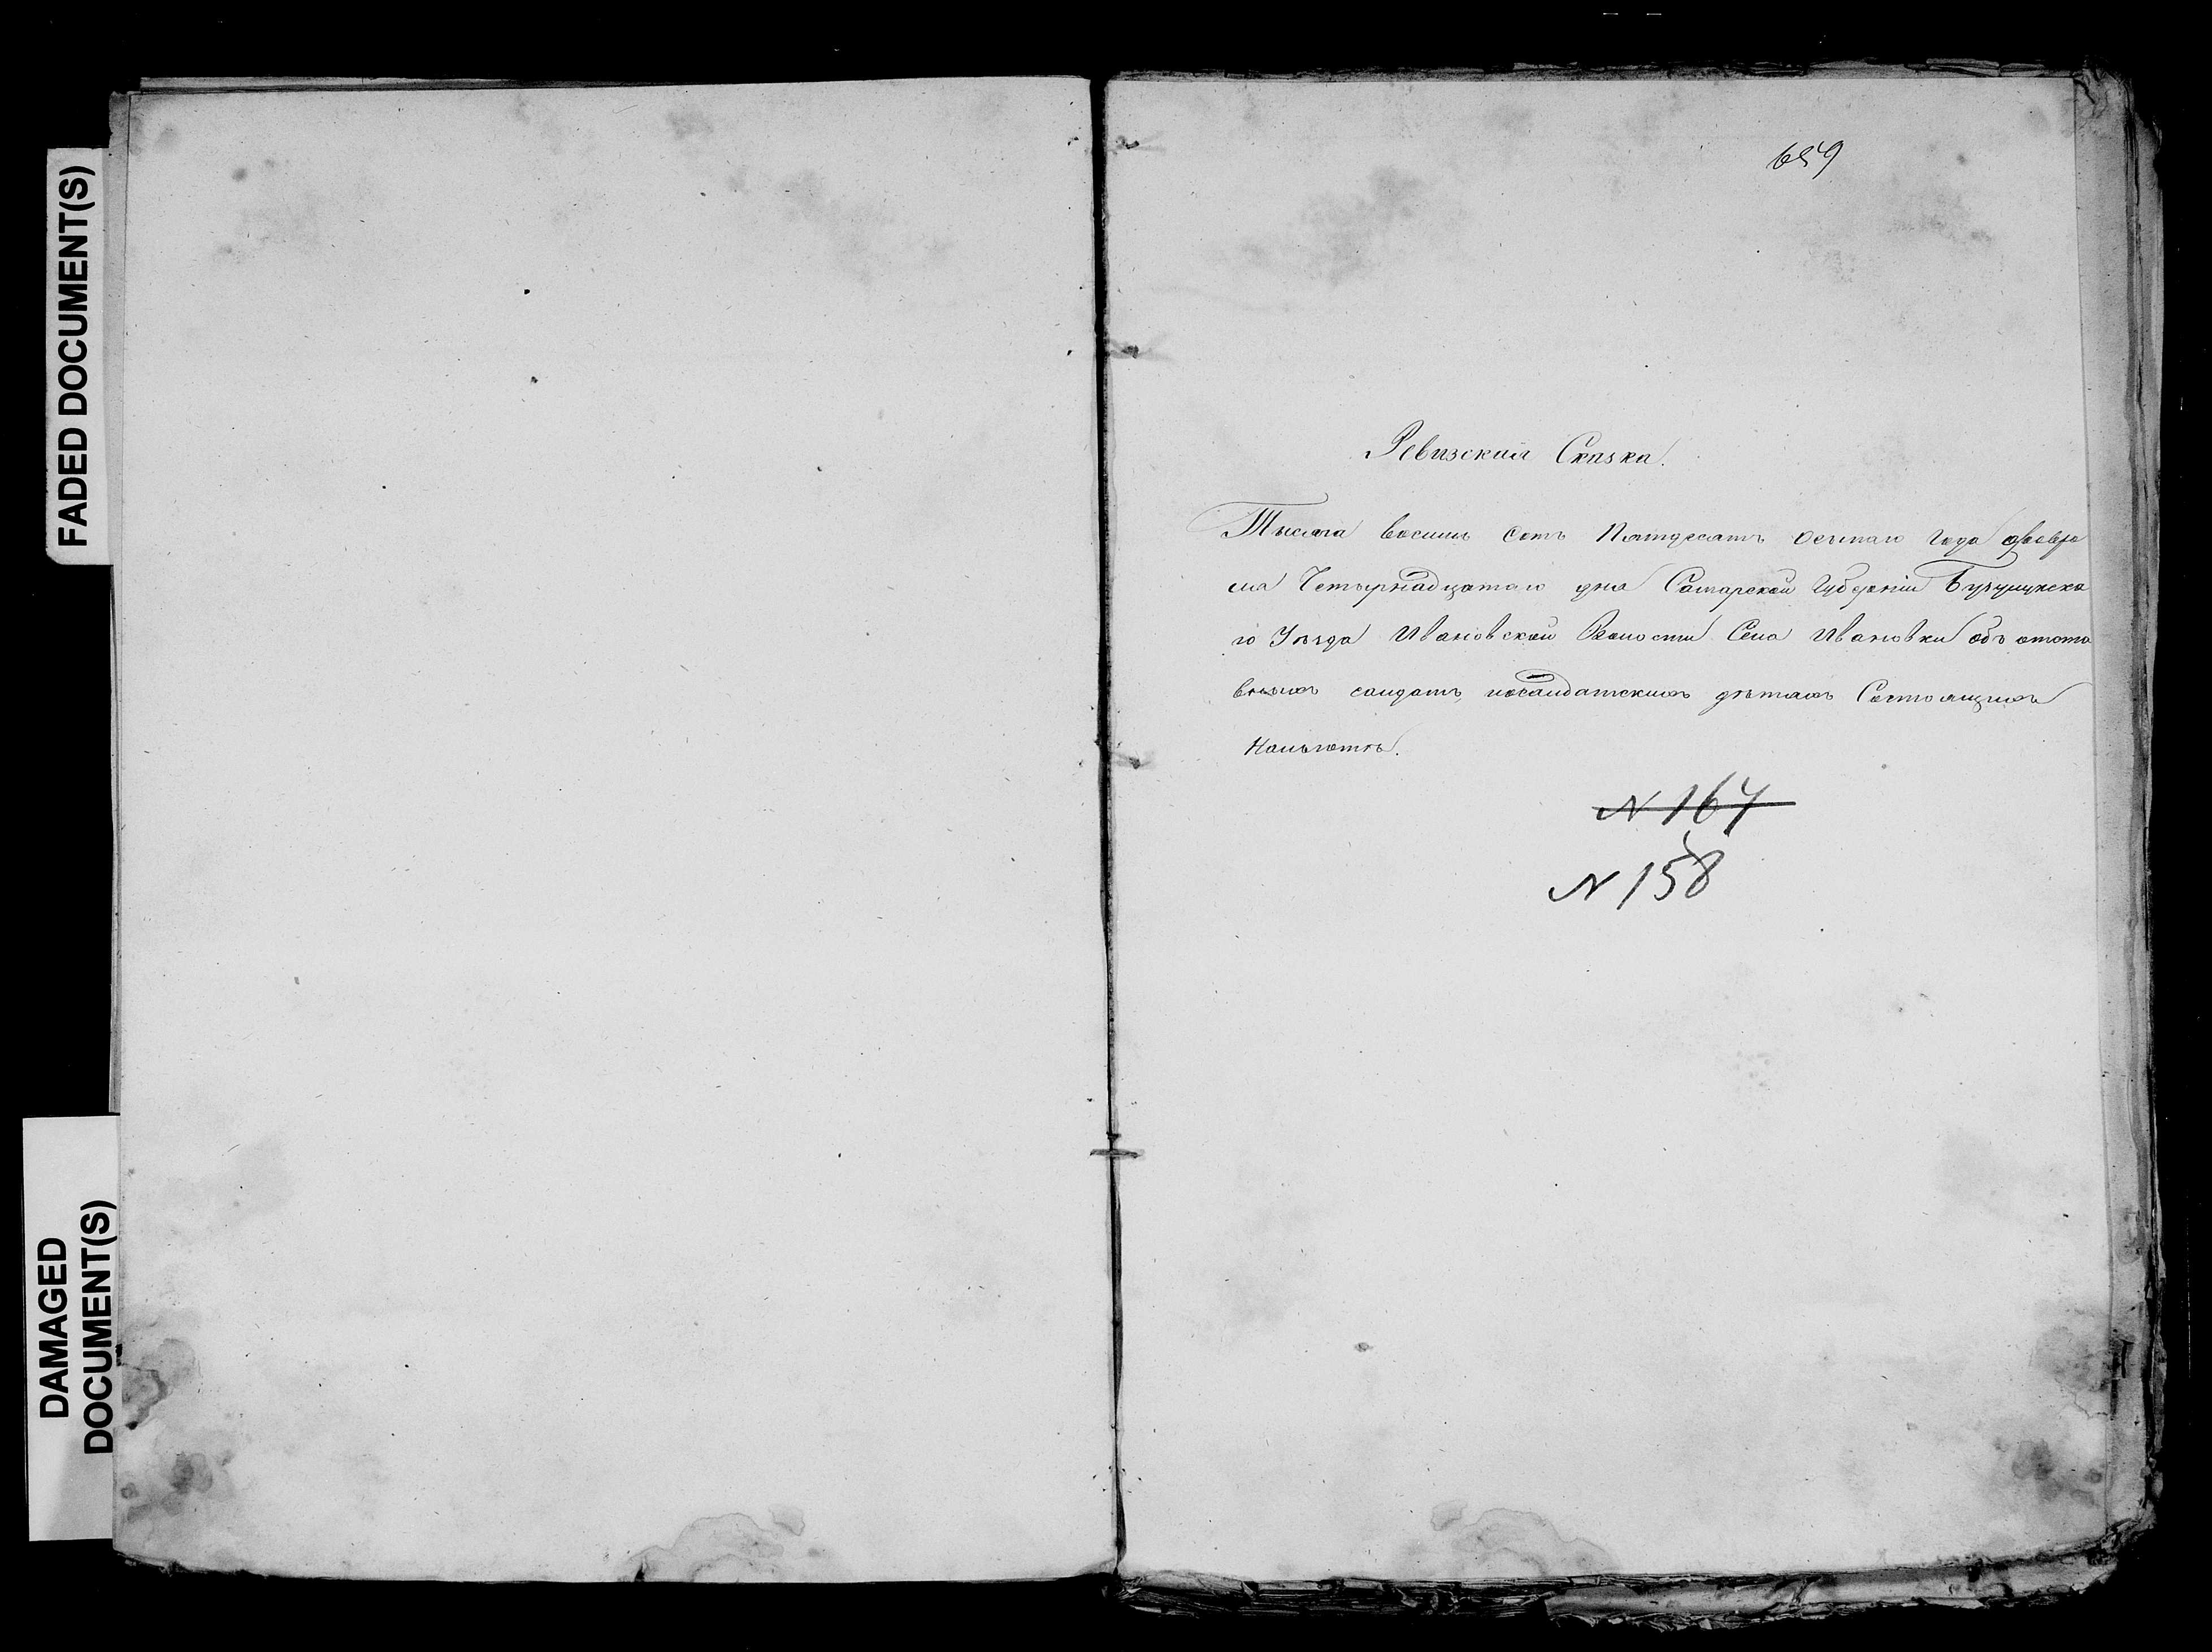 FADED DOCUMENT(S)
DAMAGED
DOCUMENT(S)
659
Ревизская Сказка.
Тысяча восемь сотъ Пятдесятъ осьмаго года февра
ля Четырнадцатаго дня Самарской Губерніи Бузулукска
го Уѣзда Ивановской Волости Села Ивановки объ отста
вныхъ солдатъ, исолдатскихъ дѣтяхъ Состоящихъ
Нальготѣ.
N 164
N 158